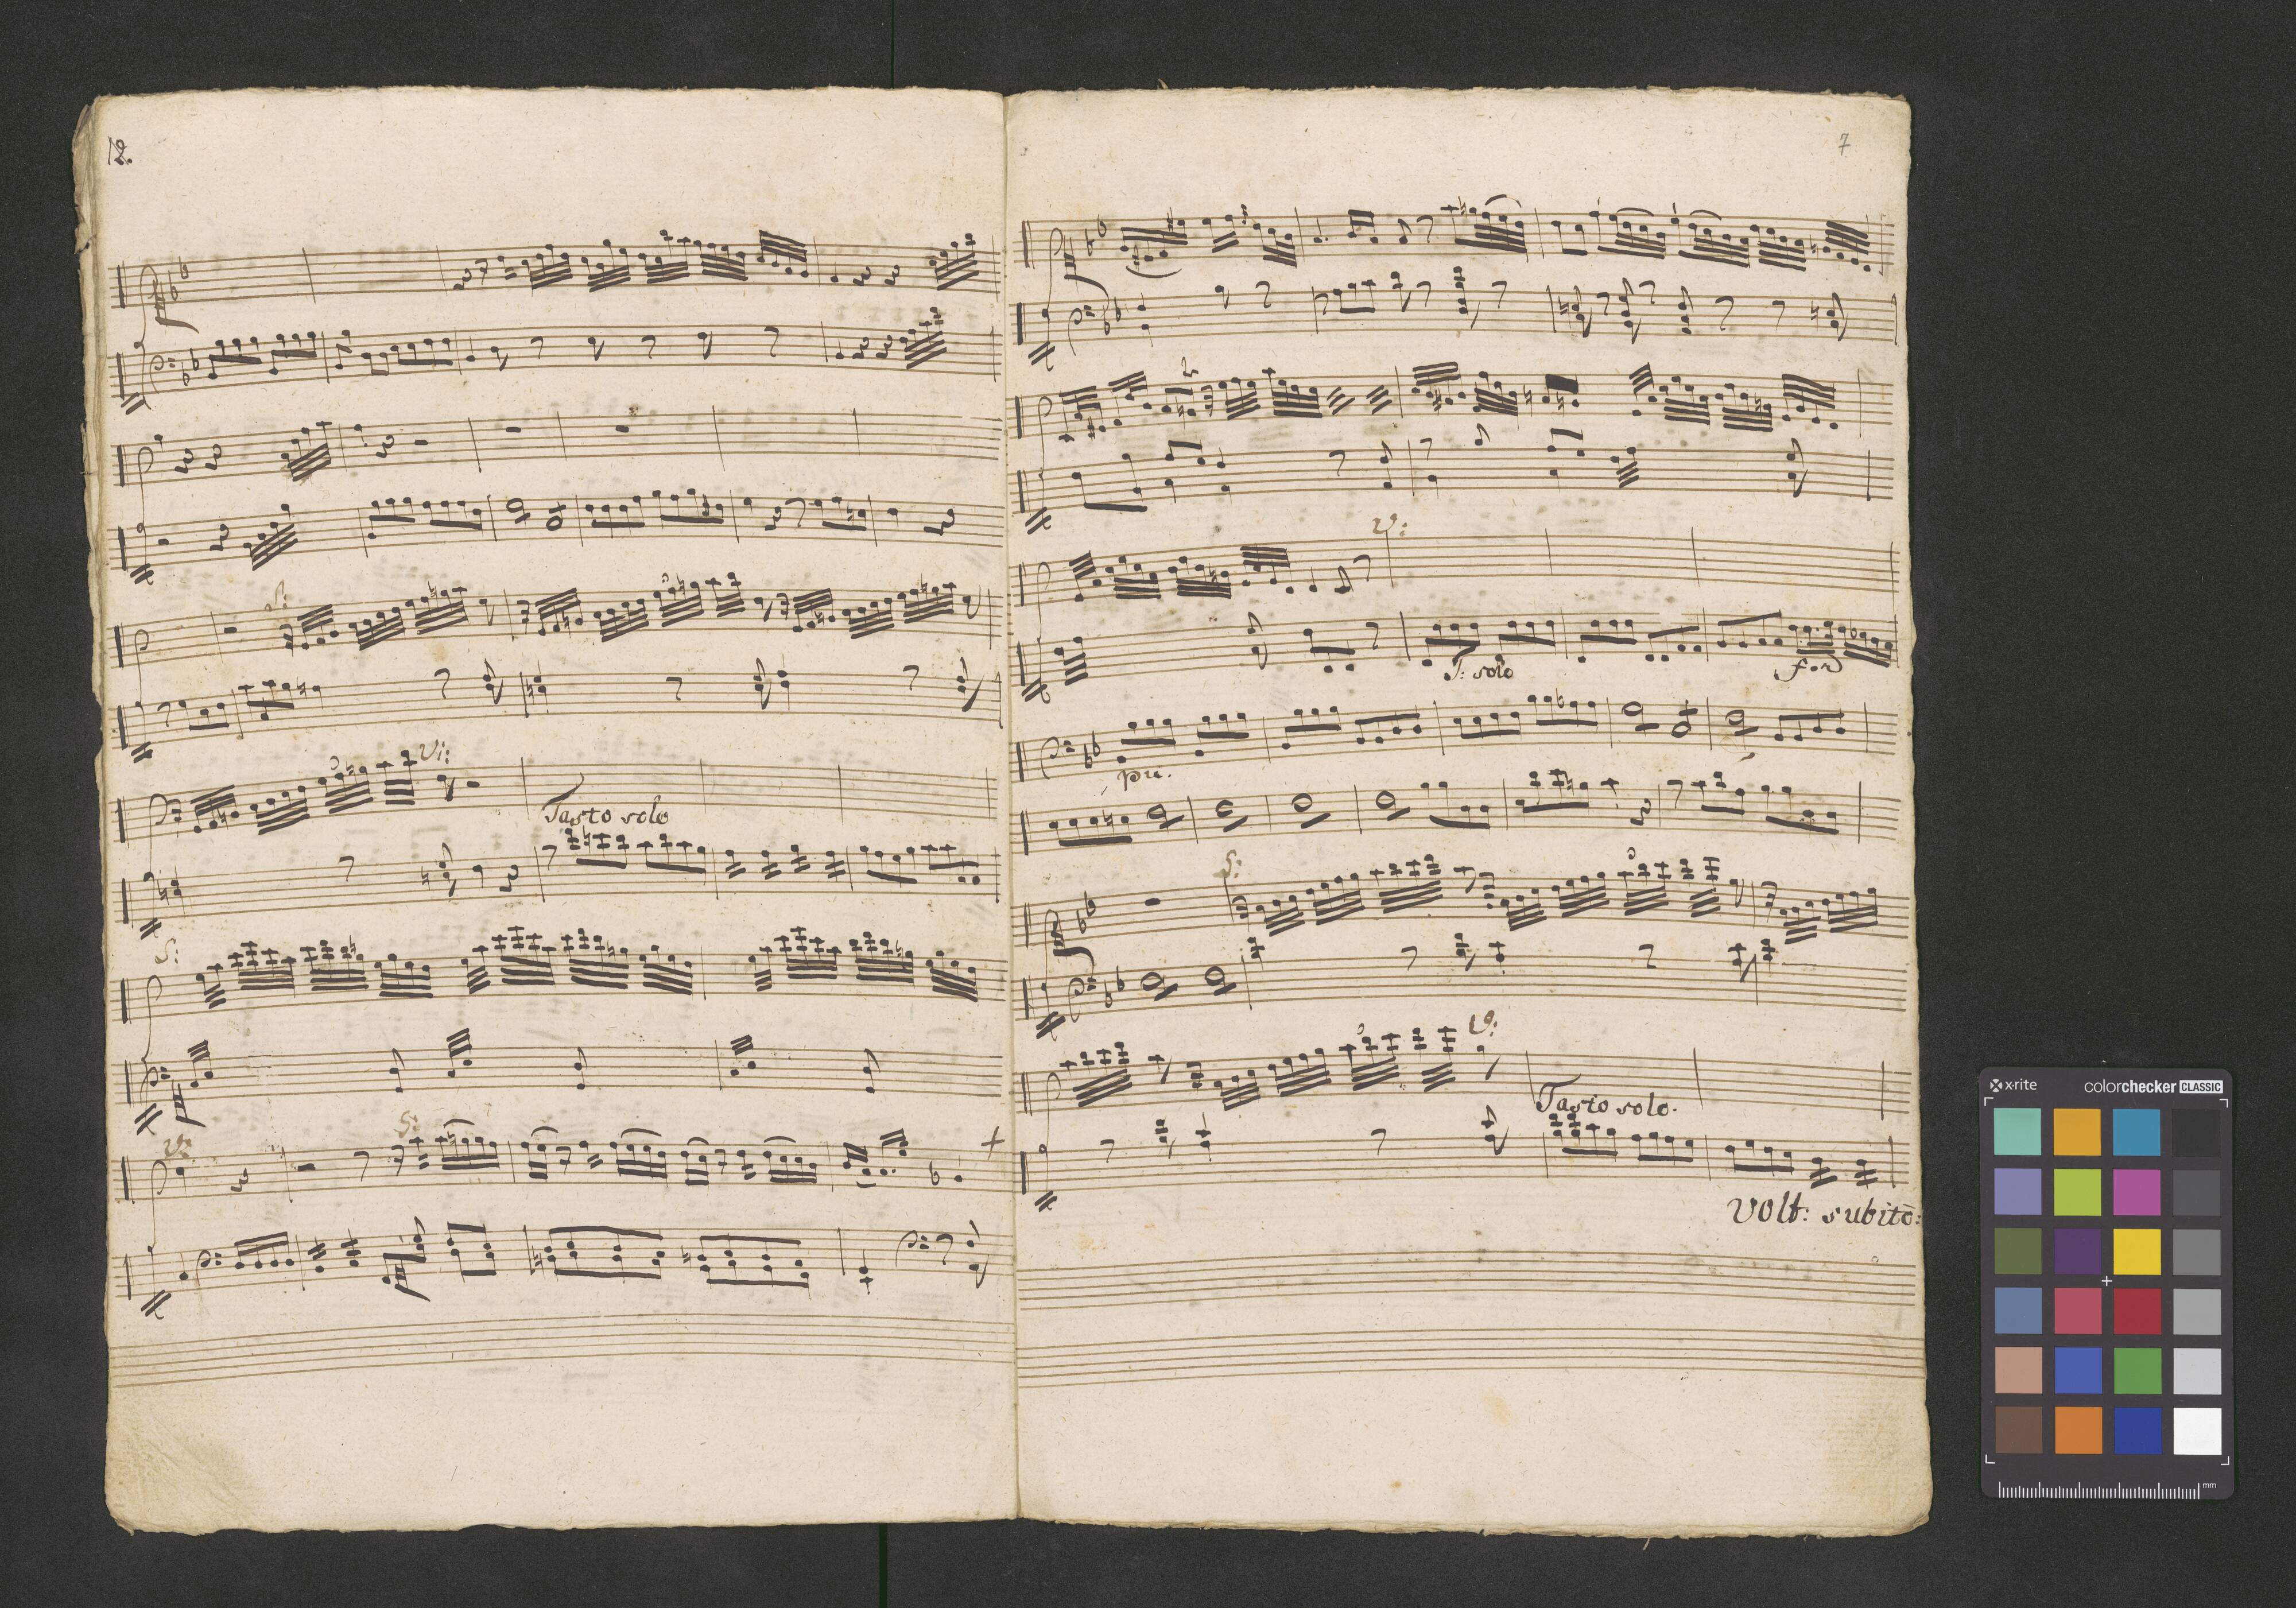 12.
S:
Vi:
Tasto solo
S:
V:
S:
7
V:
T: solo
for
pia.
S:
V:
Tasto solo.
Volt: subito:
x-rite
colorchecker CLASSIC
mm